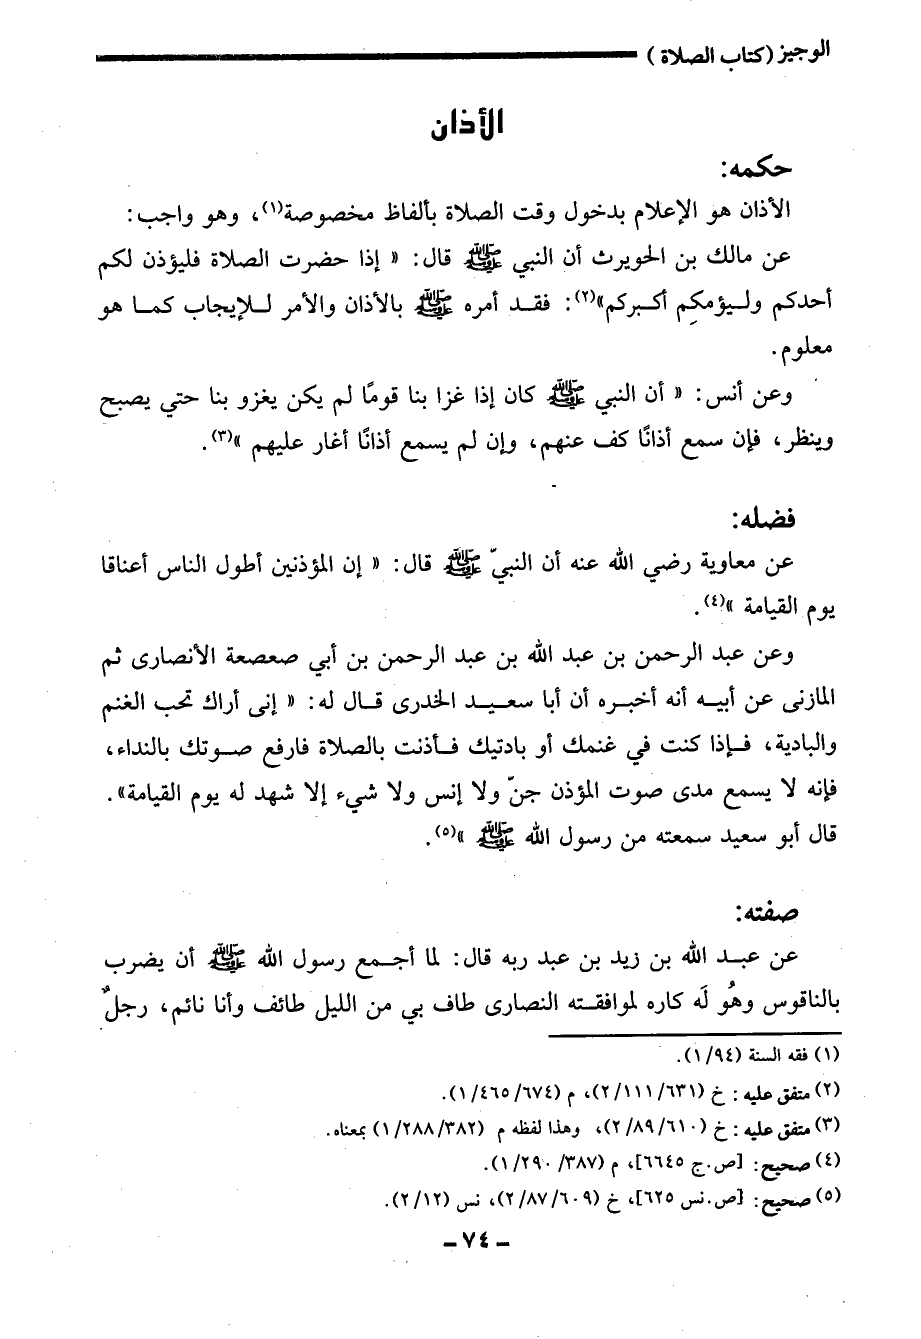 الوجيز (كتاب الصلاة)
الأذان
حكمه:
الأذان هو الإعلام بدخول وقت الصلاة بألفاظ مخصوصة(١)، وهو واجب:
عن مالك بن الحويرث أن النبي ﷺ قال: « إذا حضرت الصلاة فليؤذن لكم
أحدكم وليؤمكم أكبركم»(٢): فقد أمره ﷺ بالأذان والأمر للإيجاب كما هو
معلوم.
وعن أنس: « أن النبي ﷺ كان إذا غزا بنا قومًا لم يكن يغزو بنا حتي يصبح
وينظر، فإن سمع أذانًا كف عنهم، وإن لم يسمع أذانًا أغار عليهم »(٣).
فضله:
عن معاوية رضي الله عنه أن النبيّ ﷺ قال: « إن المؤذنين أطول الناس أعناقا
يوم القيامة »(٤).
وعن عبد الرحمن بن عبد الله بن عبد الرحمن بن أبي صعصعة الأنصارى ثم
المازنى عن أبيه أنه أخبره أن أبا سعيد الخدرى قال له: « إنى أراك تحب الغنم
والبادية، فإذا كنت في غنمك أو بادتيك فأذنت بالصلاة فارفع صوتك بالنداء،
فإنه لا يسمع مدى صوت المؤذن جنّ ولا إنس ولا شيء إلا شهد له يوم القيامة».
قال أبو سعيد سمعته من رسول الله ﷺ »(٥).
صفته:
عن عبد الله بن زيد بن عبد ربه قال: لما أجمع رسول الله ﷺ أن يضرب
بالناقوس وهُو لَه كاره لموافقته النصارى طاف بي من الليل طائف وأنا نائم، رجلٌ
(١) فقه السنة (١/٩٤).
(٢) متفق عليه: خ (٢/١١١/٦٣١)، م (١/٤٦٥/٦٧٤).
(٣) متفق عليه: خ (٢/٨٩/٦١٠)، وهذا لفظه م (١/٢٨٨/٣٨٢) بمعناه.
(٤) صحيح: [ص.ج ٦٦٤٥]، م (١/٢٩٠/٣٨٧).
(٥) صحيح: [ص.نس ٦٢٥]، خ (٢/٨٧/٦٠٩)، نس (٢/١٢).
- ٧٤ -